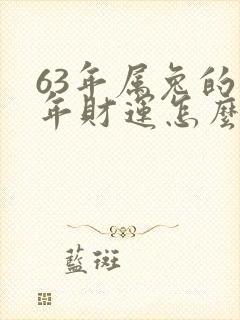 63年属兔的
年财运怎麼
藍斑